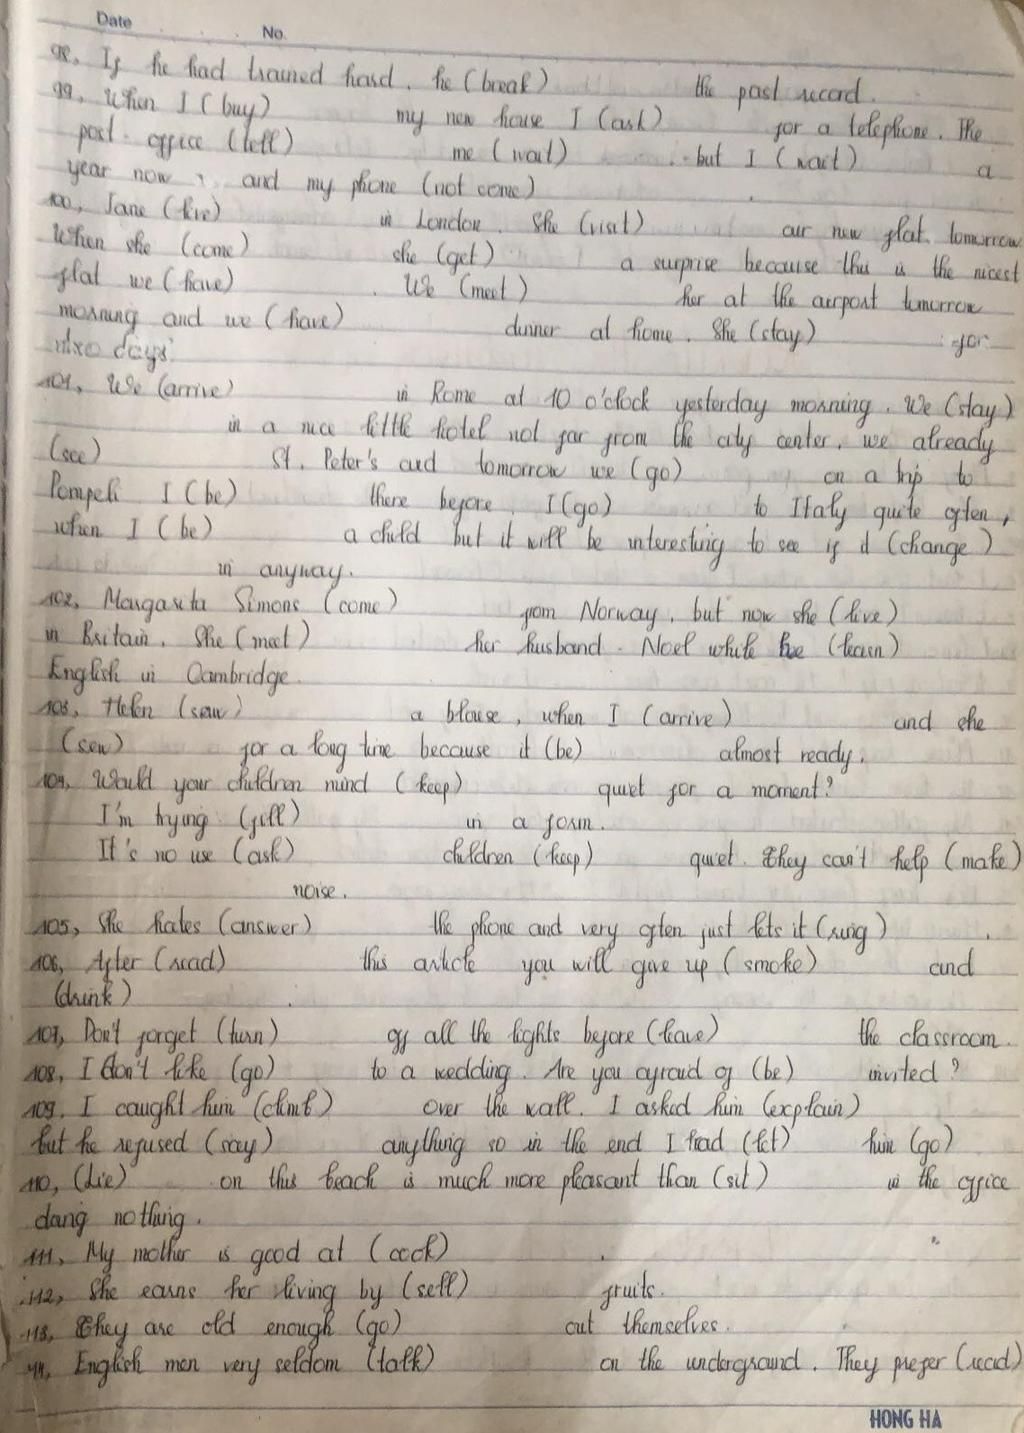 Date No.
98, If he had trained hard, he (break) the past record.
99, When I (buy) my new house I (ask) for a telephone. The
post office (tell) me (wait) but I (wait) a
year now, and my phone (not come)
100, Jane (live) in London. She (visit) our new flat tomorrow
When she (come) she (get) a surprise because this is the nicest
flat we (have). We (meet) her at the airport tomorrow
morning and we (have) dinner at home. She (stay) for
days.
101, We (arrive) in Rome at 10 o'clock yesterday morning. We (stay)
in a nice little hotel not far from the city center, we already
(see) St. Peter's and tomorrow we (go) on a trip to
Pompeli I (be) there before. I (go) to Italy quite often,
when I (be) a child but it will be interesting to see if it (change)
in anyway.
102, Margarita Simons (come) from Norway, but now she (live)
in Britain. She (meet) her husband. Noel while he (learn)
English in Cambridge.
103, Helen (sew) a blouse, when I (arrive) and she
(sew) for a long time because it (be) almost ready.
104, Would your children mind (keep) quiet for a moment?
I'm trying (fill) in a form.
It's no use (ask) children (keep) quiet. They can't help (make)
noise.
105, She hates (answer) the phone and very often just lets it (ring)
106, After (read) this article you will give up (smoke) and
(drink).
107, Don't forget (turn) off all the lights before (leave) the classroom.
108, I don't like (go) to a wedding. Are you afraid of (be) invited?
109, I caught him (climb) over the wall. I asked him (explain)
but he refused (say) anything so in the end I had (let) him (go)
110, (Lie) on this beach is much more pleasant than (sit) in the office
doing nothing.
111, My mother is good at (cook).
112, She earns her living by (sell) fruits.
113, They are old enough (go) out themselves.
114, English men very seldom (talk) on the underground. They prefer (read)
HONG HA